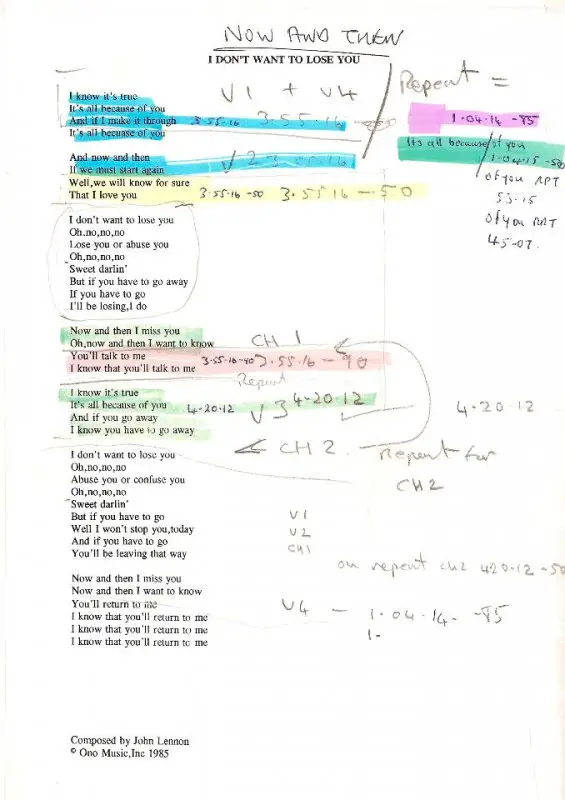 NOW AND THEN
I DON'T WANT TO LOSE YOU
V1 + V4
Repeat =
I know it's true
It's all because of you
And if I make it through 3-55-16 3-55-16
1-04-14 -95
It's all becuase of you
Its all because of you
1-04-15 -50
And now and then
If we must start again V2 3-55-16
of you RPT
53-15
Well,we will know for sure
That I love you 3-55-16 -50 3-55-16 - 50
of you RPT
45-07.
I don't want to lose you
Oh.no,no,no
Lose you or abuse you
Oh,no,no,no
Sweet darlin'
But if you have to go away
If you have to go
I'll be losing,I do
Now and then I miss you
Oh,now and then I want to know CH 1
You'll talk to me 3-55-16-90 3-55-16 - 90
I know that you'll talk to me
Repeat
I know it's true
It's all because of you 4-20-12 V3 4-20-12
4-20-12
And if you go away
I know you have to go away
CH 2.
Repeat for
CH2
I don't want to lose you
Oh,no,no,no
Abuse you or confuse you
Oh,no,no,no
Sweet darlin'
But if you have to go V1
Well I won't stop you,today V2
And if you have to go CH1
You'll be leaving that way
on repeat ch2 420-12 -50
Now and then I miss you
Now and then I want to know
You'll return to me V4 - 1-04-14- -95
I know that you'll return to me
1-
I know that you'll return to me
I know that you'll return to me
Composed by John Lennon
© Ono Music,Inc 1985